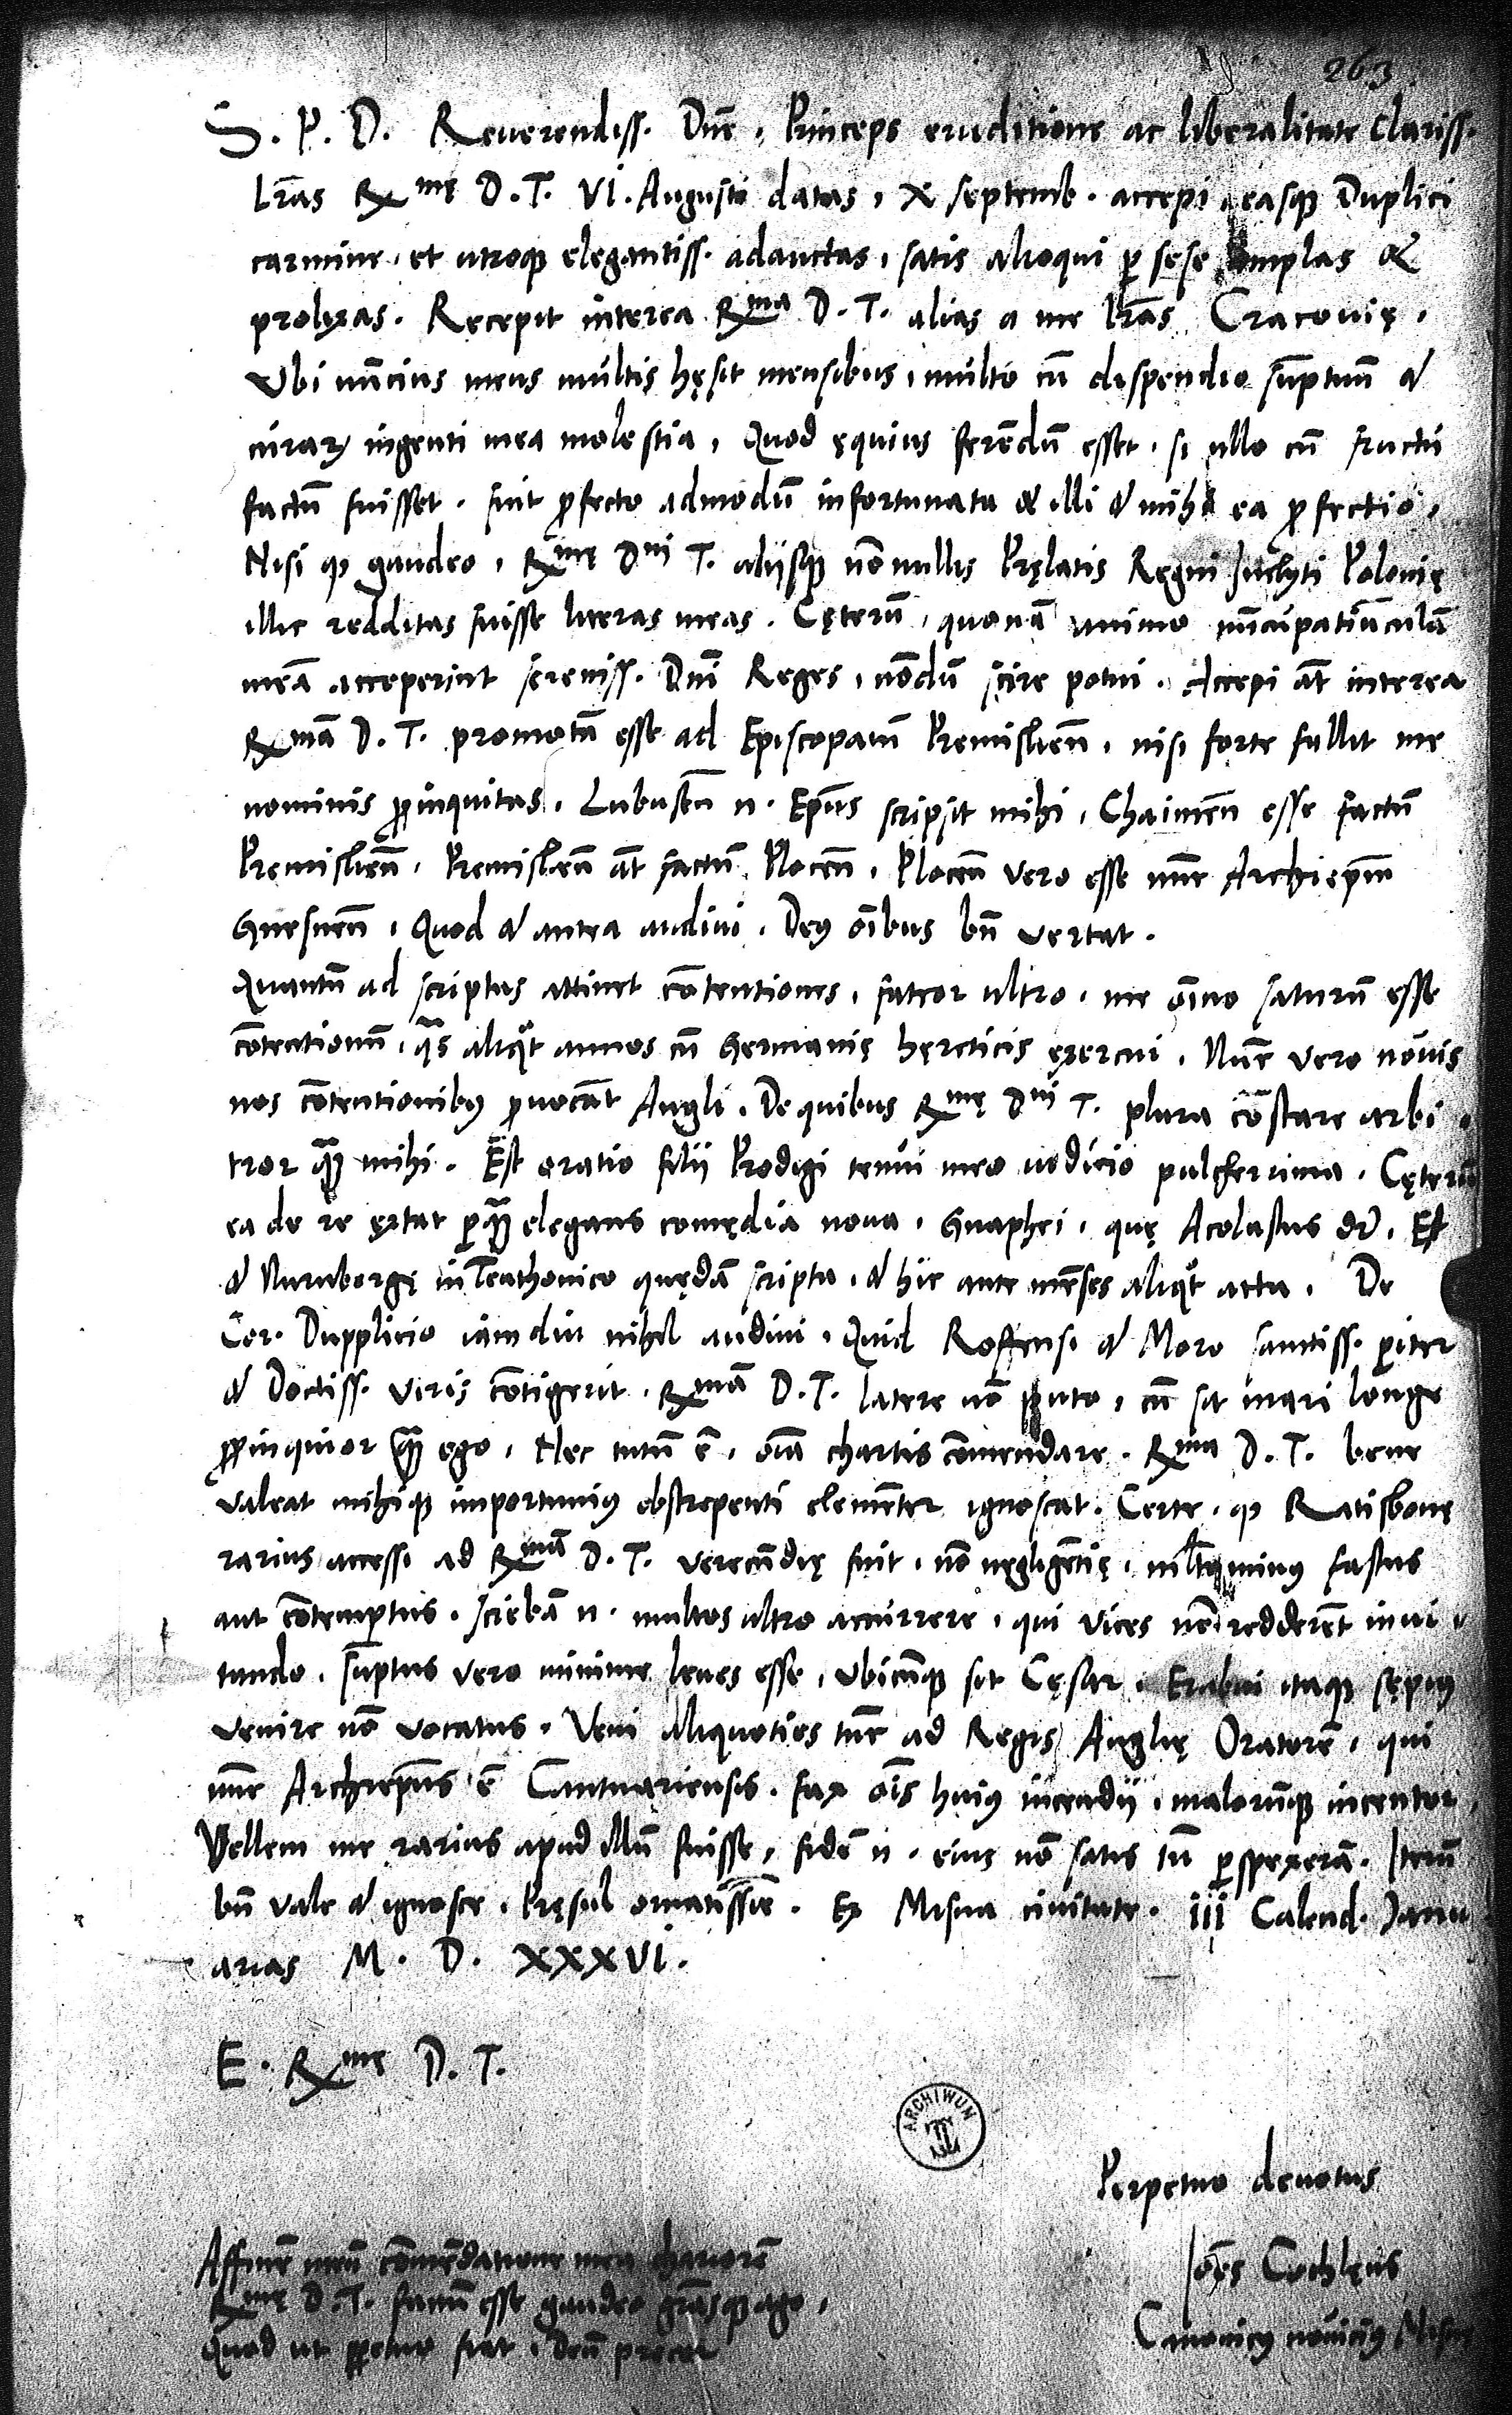 263
S. P. D. Reuerendiss. Dn̄e, Princeps eruditione ac liberalitate clariss.
Lr̄as Rmę D. T. VI. Augusti datas, X septemb. accepi, easq; Duplici
carmine, et utroq; elegantiss. adauctas, satis alioqui p̱ sese amplas &
prolixas. Recepit interea Rma D. T. alias a me lr̄as Cracouię.
Vbi nūcius meus multis hęsit mensibus, multo cū dispendio sūptuū &
curaꝝ ingenti mea molestia, Quod ęquius ferendū esset, si ullo cū fructu
factū fuisset. fuit ꝓfecto admodū infortunata & illi & mihi ea ꝓfectio,
Nisi ꝙ gaudeo, Rmę Dni T. alijsq; nonnullis Pręlatis Regni Inclyti Polonię
illic redditas fuisse literas meas. Cęterū, quonā animo nūcupatiunculā
meā acceperint sereniss. Dn̄i Reges, nōdū scire potui. Accepi aūt interea
Rmā D. T. promotā esse ad Episcopatū Premislień, nisi forte fallit me
nominis ꝓpinquitas. Lubuseń n. Ep̄us scripsit mihi, Chaimeń esse factū
Premislień, Premislień aūt factū Ploceń, Ploceń vero esse nūc Archiep̄m
Gnesneń, Quod & antea audiui. Deꝰ oībus bn̄ vertat.
Quantū ad scriptas attinet cōtentiones, fateor ultro, me oīno saturū esse
cōtentionū, quas aliqt annos cū Germanię hęreticis exercui. Nūc vero nouis
nos cōtentionibꝰ ꝓuocāt Angli. De quibus Rmę Dni T. plura cōstare arbi-
tror quā mihi. Est oratio filij Prodigi tenui meo iudicio pulcherrima. Cęterū
ea de re extat p̱quā elegans comędia noua, Gnaphei, quę Acolastus dr̄. Est
& Nurnbergę in Teuthonico quędā scripta, & hic ante menses aliqt acta. De
Cor. Dupplicio iam diu nihil audiui. Quid Roffensi & Moro sanctiss. p̱iter
& Doctiss. viris cōtigerit, Rmā D. T. latere nō puto, cū sit mari longe
ꝓpinquior quā ego, Nec tutū ē, oīa chartis cōmendare. Rma D. T. bene
valeat mihiq; importuniꝰ obstrepenti clemēter ignoscat. Certe, ꝙ Ratisbonę
rarius accessi ad Rmā D. T. verecūdię fuit, nō negligētię, multoq; minꝰ fastus
aut cōtemptus. Sciebā n. multos ultro accurrere, qui vices nō redderēt inui-
tando, sūptus vero minime leues esse, ubicūq; sit Cęsar. Erubui itaq; sępiꝰ
venire nō vocatus. Veni aliquoties tūc ad Regis Anglię Oratorē, qui
nūc Archiep̄us ē Cantuariensis, fax oīs huiꝰ incendij, malorūq; incentor.
Vellem me rarius apud illū fuisse, fidē n. eius nō satis tū p̱spexerā. Iterū
bn̄ vale & ignosce, Pręsul ornatissīe. Ex Misna ciuitate. iij Calend. Janu
arias M. D. XXXVI.
E. Rmę D. T.
ARCHIWUM
Perpetuo deuotus
Ioēs Cochlęus
Canonicꝰ nouiciꝰ Misn
Affinē meū cōmēdatione mea chariorē
Rmę D. T. factū esse gaudeo grās q; ago,
Quod ut ꝓpetuo fiat, Deū precor